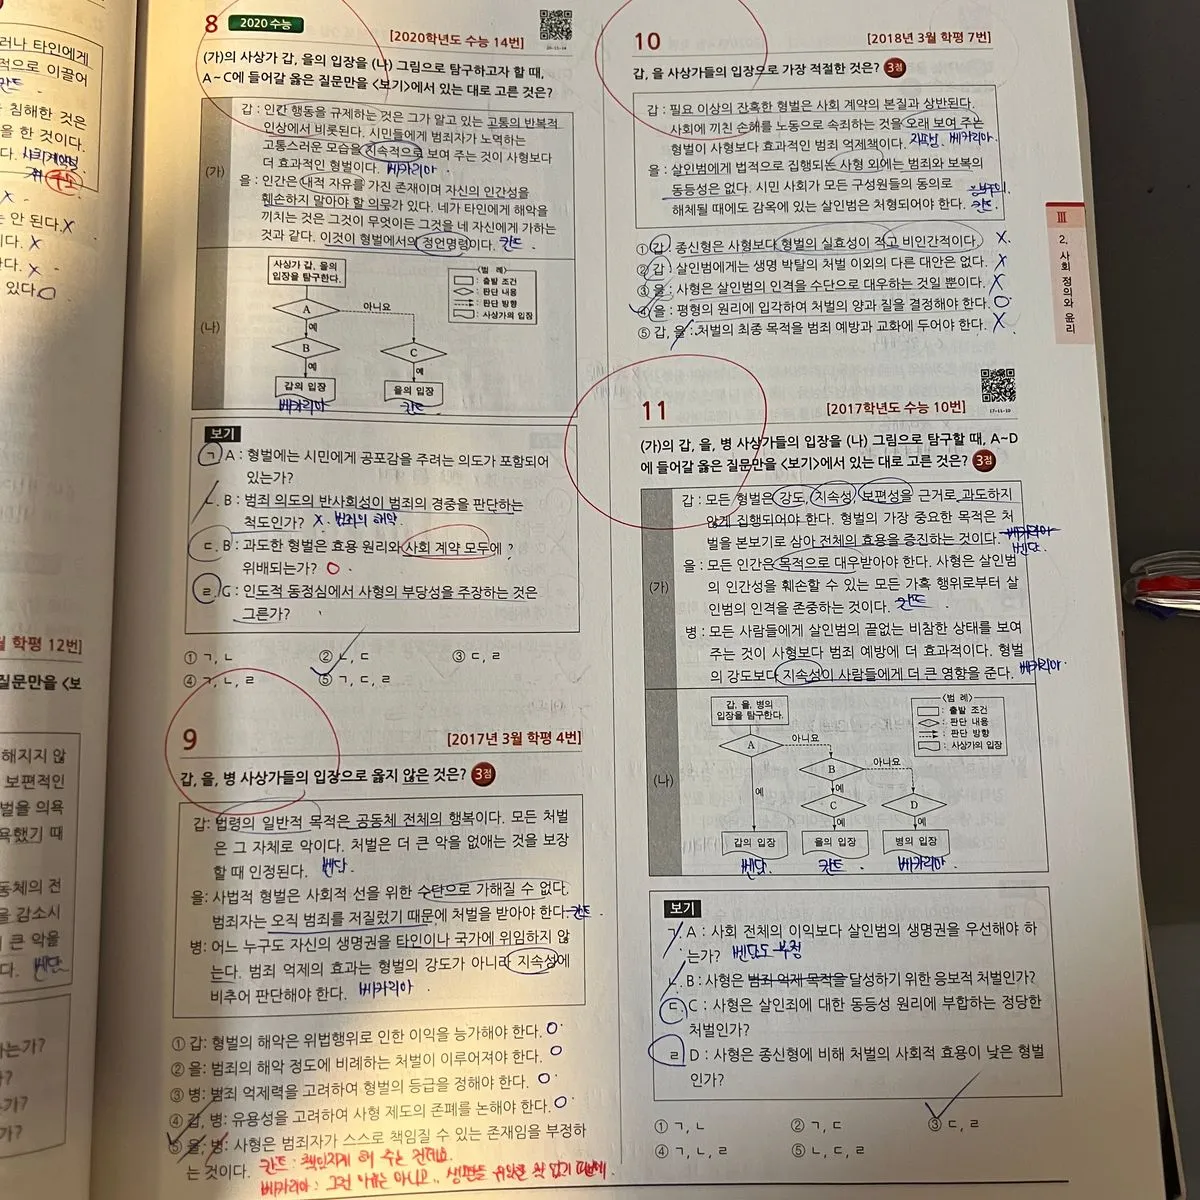 러나 타인에게
적으로 이끌어
칸트
침해한 것은
을 한 것이다.
다. 사회계약설
안 된다. X
다. X
다. X
있다. O
학평 12번]
질문만을 <보
해지지 않
보편적인
벌을 의욕
욕했기 때
동체의 전
을 감소시
큰 악을
다. 벤담
는가?
가?
가?
가?
8 2020 수능 [2020학년도 수능 14번]
(가)의 사상가 갑, 을의 입장을 (나) 그림으로 탐구하고자 할 때,
A~C에 들어갈 옳은 질문만을 <보기>에서 있는 대로 고른 것은?
(가)
갑 : 인간 행동을 규제하는 것은 그가 알고 있는 고통의 반복적
인상에서 비롯된다. 시민들에게 범죄자가 노역하는
고통스러운 모습을 지속적으로 보여 주는 것이 사형보다
더 효과적인 형벌이다. 베카리아
을 : 인간은 내적 자유를 가진 존재이며 자신의 인간성을
훼손하지 말아야 할 의무가 있다. 네가 타인에게 해악을
끼치는 것은 그것이 무엇이든 그것을 네 자신에게 가하는
것과 같다. 이것이 형벌에서의 정언명령이다. 칸트
(나)
사상가 갑, 을의
입장을 탐구한다.
<범 례>
: 출발 조건
: 판단 내용
: 판단 방향
: 사상가의 입장
A 아니요
예
B C
예 예
갑의 입장 을의 입장
베카리아 칸트
보기
ㄱ. A : 형벌에는 시민에게 공포감을 주려는 의도가 포함되어
있는가?
ㄴ. B : 범죄 의도의 반사회성이 범죄의 경중을 판단하는
척도인가? X. 범죄의 해악
ㄷ. B : 과도한 형벌은 효용 원리와 사회 계약 모두에
위배되는가? O
ㄹ. C : 인도적 동정심에서 사형의 부당성을 주장하는 것은
그른가?
① ㄱ, ㄴ ② ㄴ, ㄷ ③ ㄷ, ㄹ
④ ㄱ, ㄴ, ㄹ ⑤ ㄱ, ㄷ, ㄹ
9 [2017년 3월 학평 4번]
갑, 을, 병 사상가들의 입장으로 옳지 않은 것은? 3점
갑: 법령의 일반적 목적은 공동체 전체의 행복이다. 모든 처벌
은 그 자체로 악이다. 처벌은 더 큰 악을 없애는 것을 보장
할 때 인정된다. 벤담
을: 사법적 형벌은 사회적 선을 위한 수단으로 가해질 수 없다.
범죄자는 오직 범죄를 저질렀기 때문에 처벌을 받아야 한다. 칸트
병: 어느 누구도 자신의 생명권을 타인이나 국가에 위임하지 않
는다. 범죄 억제의 효과는 형벌의 강도가 아니라 지속성에
비추어 판단해야 한다. 베카리아
① 갑: 형벌의 해악은 위법행위로 인한 이익을 능가해야 한다. O
② 을: 범죄의 해악 정도에 비례하는 처벌이 이루어져야 한다. O
③ 병: 범죄 억제력을 고려하여 형벌의 등급을 정해야 한다. O
④ 갑, 병: 유용성을 고려하여 사형 제도의 존폐를 논해야 한다. O
⑤ 을, 병: 사형은 범죄자가 스스로 책임질 수 있는 존재임을 부정하
는 것이다. 칸트 : 책임지게 해 주는 건데요.
베카리아 : 그런 이유는 아니고..
10 [2018년 3월 학평 7번]
갑, 을 사상가들의 입장으로 가장 적절한 것은? 3점
갑 : 필요 이상의 잔혹한 형벌은 사회 계약의 본질과 상반된다.
사회에 끼친 손해를 노동으로 속죄하는 것을 오래 보여 주는
형벌이 사형보다 효과적인 범죄 억제책이다. 베카리아
을 : 살인범에게 법적으로 집행되는 사형 외에는 범죄와 보복의
동등성은 없다. 시민 사회가 모든 구성원들의 동의로
해체될 때에도 감옥에 있는 살인범은 처형되어야 한다. 칸트
① 갑 : 종신형은 사형보다 형벌의 실효성이 적고 비인간적이다. X
② 갑 : 살인범에게는 생명 박탈의 처벌 이외의 다른 대안은 없다. X
③ 을 : 사형은 살인범의 인격을 수단으로 대우하는 것일 뿐이다. X
④ 을 : 평형의 원리에 입각하여 처벌의 양과 질을 결정해야 한다. O
⑤ 갑, 을 : 처벌의 최종 목적을 범죄 예방과 교화에 두어야 한다. X
11 [2017학년도 수능 10번]
17-11-10
(가)의 갑, 을, 병 사상가들의 입장을 (나) 그림으로 탐구할 때, A~D
에 들어갈 옳은 질문만을 <보기>에서 있는 대로 고른 것은? 3점
(가)
갑 : 모든 형벌은 강도, 지속성, 보편성을 근거로 과도하지
않게 집행되어야 한다. 형벌의 가장 중요한 목적은 처
벌을 본보기로 삼아 전체의 효용을 증진하는 것이다. 베카리아
벤담
을 : 모든 인간은 목적으로 대우받아야 한다. 사형은 살인범
의 인간성을 훼손할 수 있는 모든 가혹 행위로부터 살
인범의 인격을 존중하는 것이다. 칸트
병 : 모든 사람들에게 살인범의 끝없는 비참한 상태를 보여
주는 것이 사형보다 범죄 예방에 더 효과적이다. 형벌
의 강도보다 지속성이 사람들에게 더 큰 영향을 준다. 베카리아
(나)
갑, 을, 병의
입장을 탐구한다.
<범 례>
: 출발 조건
: 판단 내용
: 판단 방향
: 사상가의 입장
A 아니요
B 아니요
예 예
C D
예 예
갑의 입장 을의 입장 병의 입장
벤담 칸트 베카리아
보기
ㄱ. A : 사회 전체의 이익보다 살인범의 생명권을 우선해야 하
는가? 벤담도 부정
ㄴ. B : 사형은 범죄 억제 목적을 달성하기 위한 응보적 처벌인가?
ㄷ. C : 사형은 살인죄에 대한 동등성 원리에 부합하는 정당한
처벌인가?
ㄹ. D : 사형은 종신형에 비해 처벌의 사회적 효용이 낮은 형벌
인가?
① ㄱ, ㄴ ② ㄱ, ㄷ ③ ㄷ, ㄹ
④ ㄱ, ㄴ, ㄹ ⑤ ㄴ, ㄷ, ㄹ
Ⅲ
2. 사회 정의와 윤리